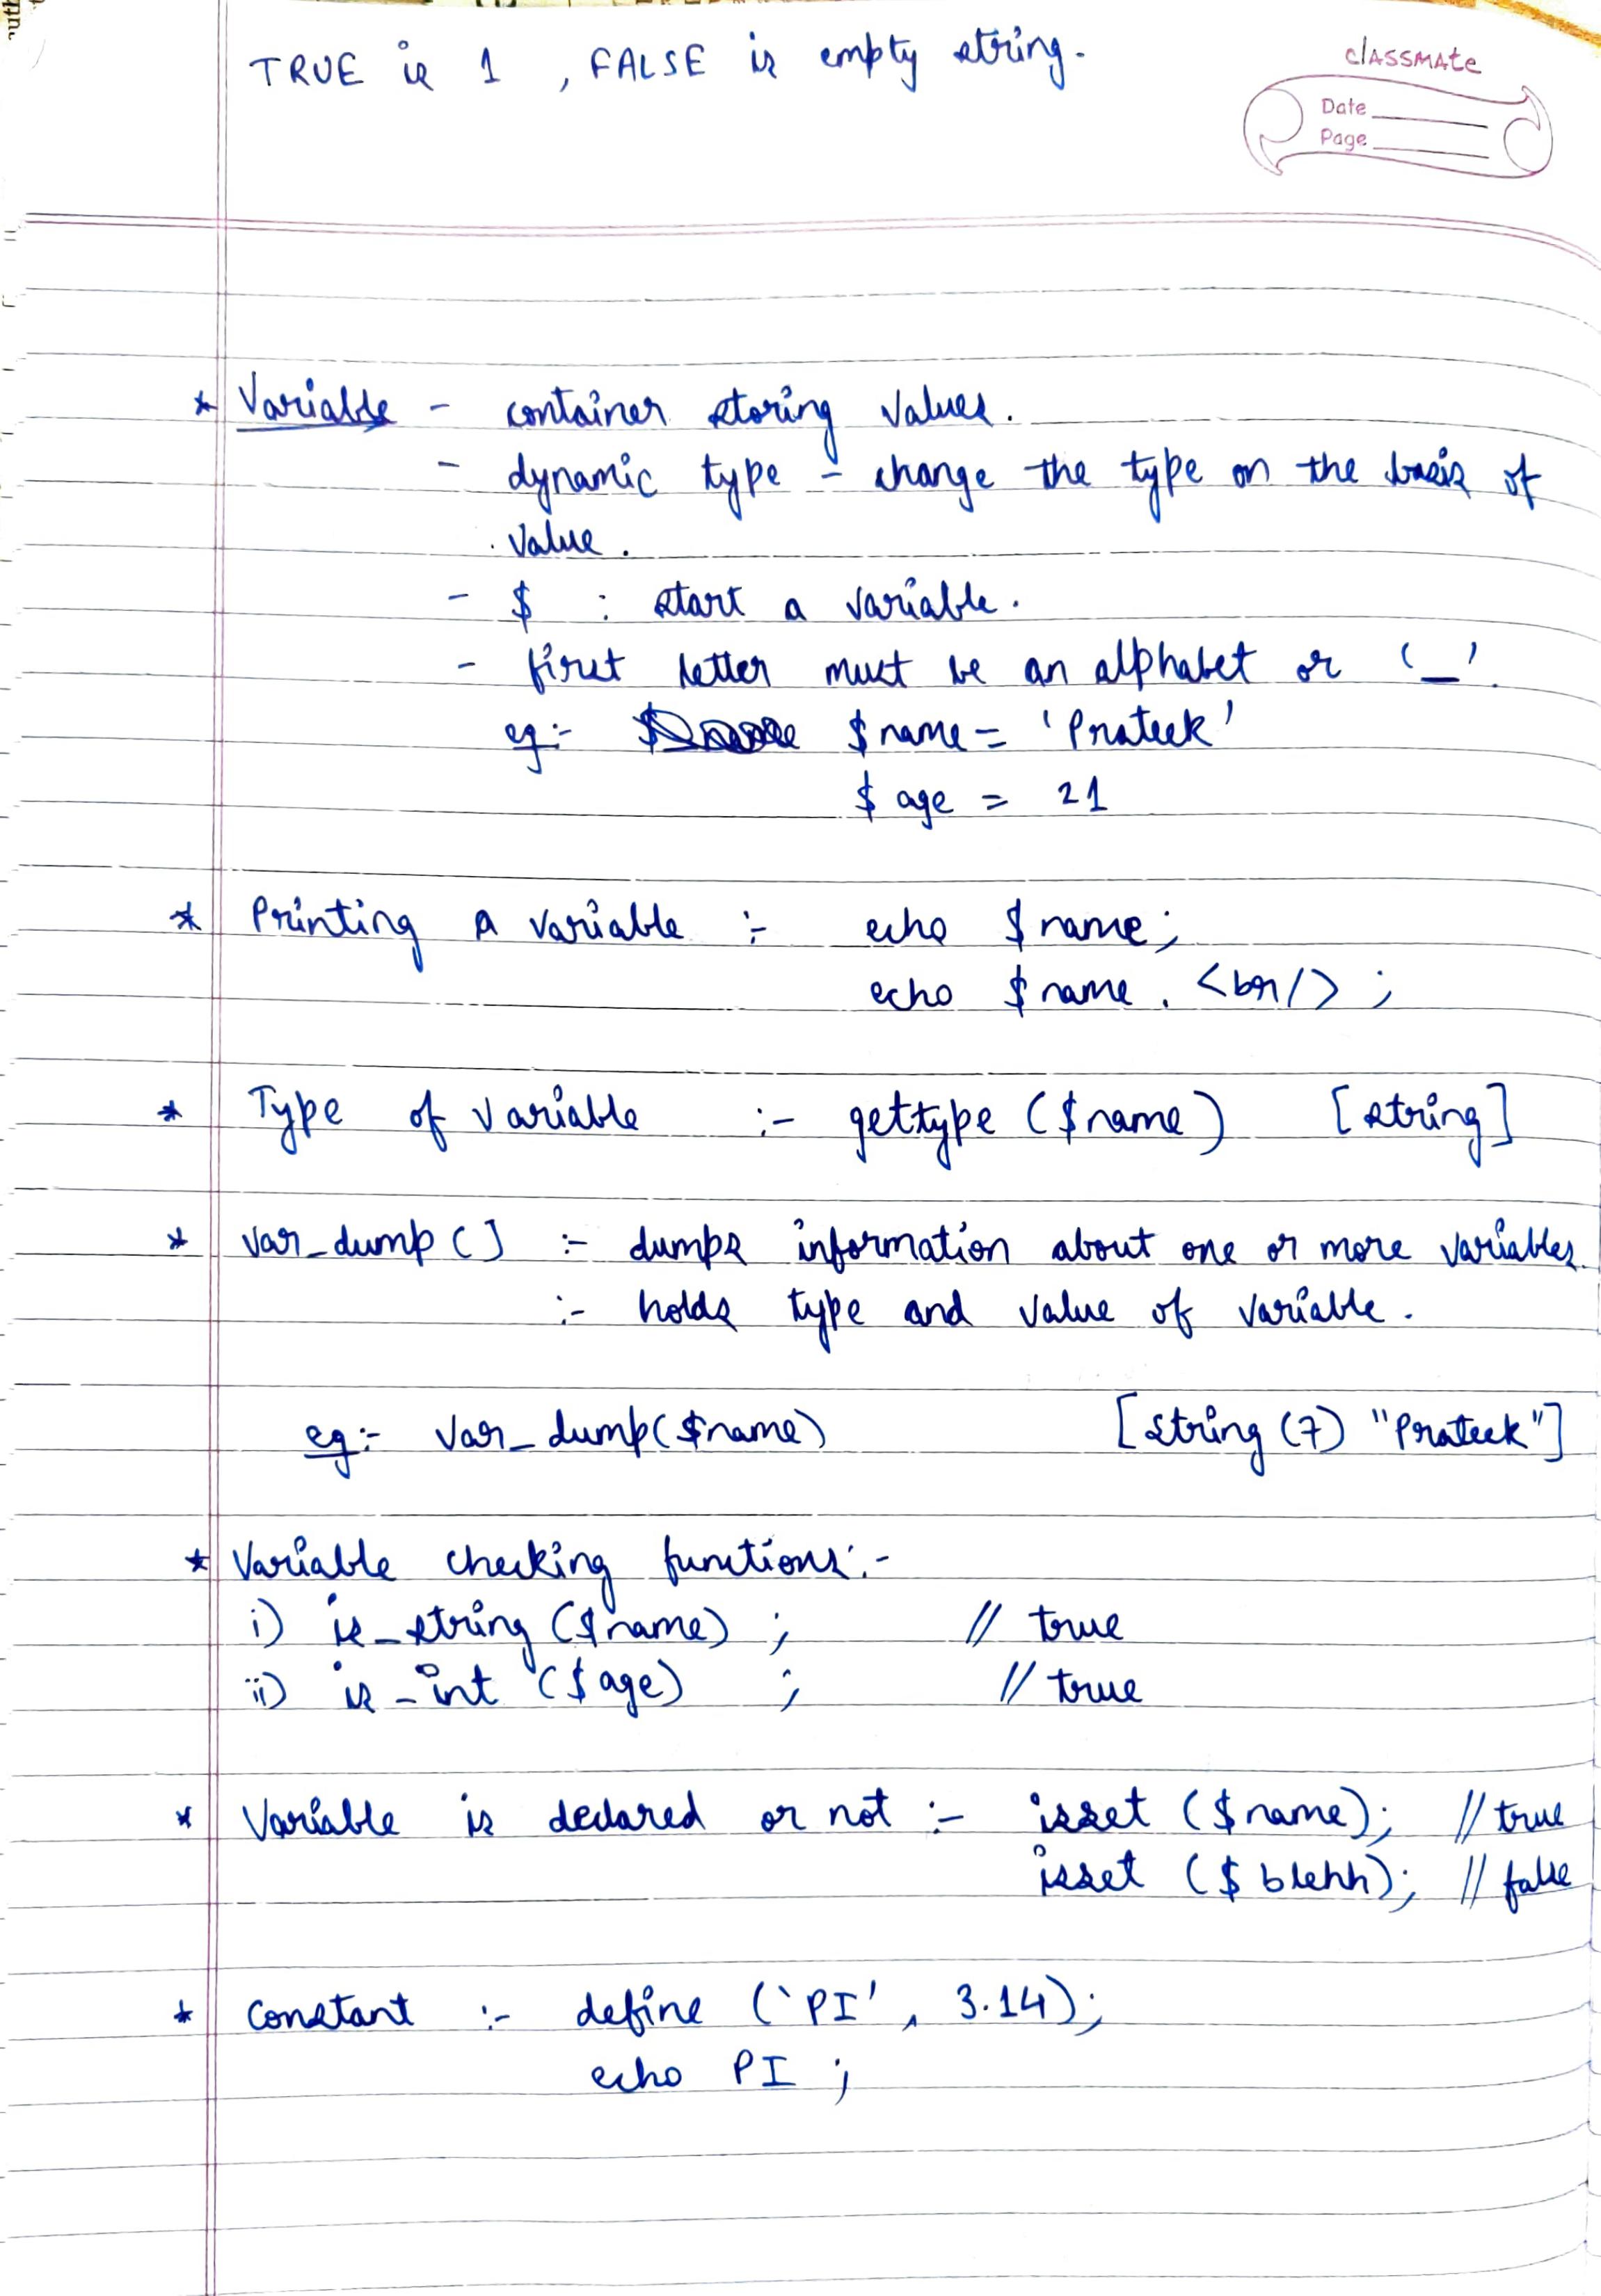 TRUE is 1 , FALSE is empty string.
classmate
Date
Page
* Variable - container storing values.
- dynamic type - change the type on the basis of
value.
- $ : start a variable.
- first letter must be an alphabet or '_'.
eg:- $name = 'Prateek'
$age = 21
* Printing a variable :- echo $name;
echo $name . <br/> ;
* Type of variable :- gettype ($name) [string]
* var_dump() :- dumps information about one or more variables.
:- holds type and value of variable.
eg:- var_dump($name) [string (7) "Prateek"]
* Variable checking functions:-
i) is_string ($name) ; // true
ii) is_int ($age) ; // true
* Variable is declared or not :- isset ($name); // true
isset ($blehh); // false
* Constant :- define ('PI' , 3.14);
echo PI ;